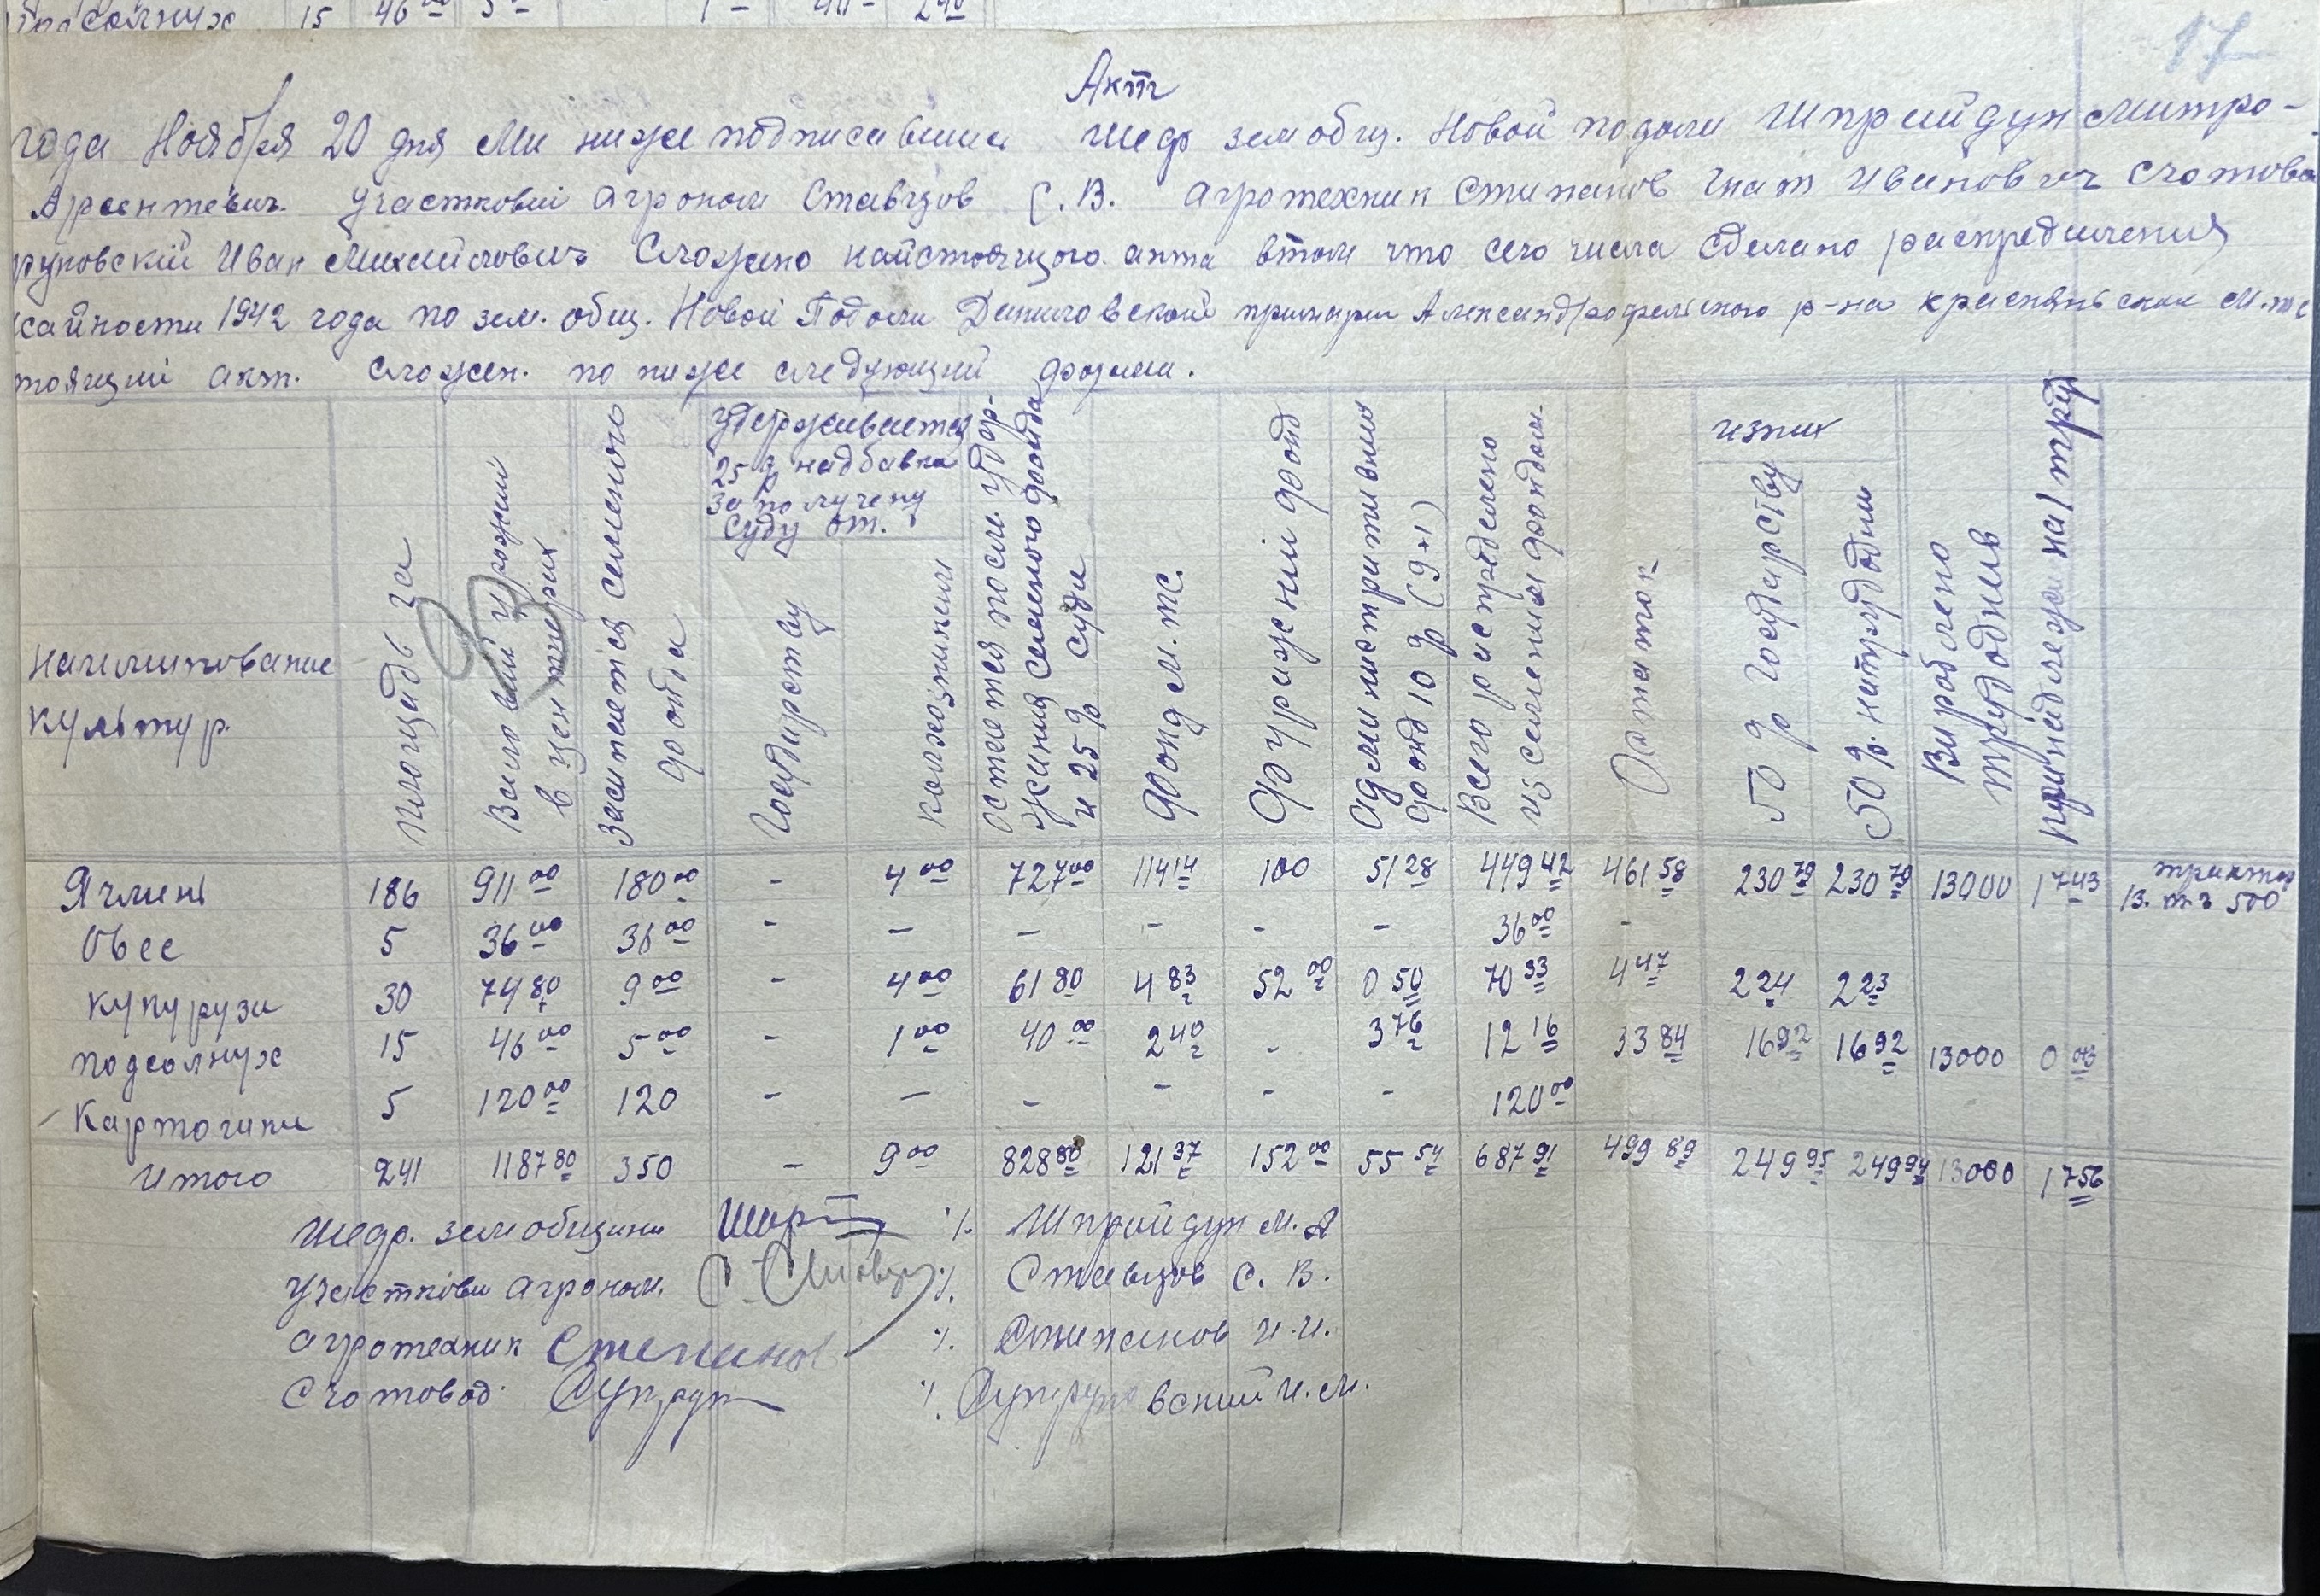 подсолнух 15 46 00
17
Акт
года Ноября 20 дня Ми ниже подписавшиеся шеф зем общ. Новой подоли Шпрайдун Митро-
Арсентевич. Участковий агроном Ставцов С. В. агротехник Стипанов Игнат Иванович счотовод
руновскій Иван Михайлович сложено найстоящого акта втом что сего числа сделано распределения
жайности 1942 года по зем. общ. Новой Подоли Даниловской примарии Александрофельского р-на М.т.с
тоящий акт. сложен. по ниже следующий форми.
Наименование
культур.
площадь га
Валовий урожай
в центнерах
Засипается семеного
фонда
Удерживается
25% надбавка
за получену
суду от.
Государству
колхозником
Остается посли. удер-
жания семеного фонда
и 25% суди
Фонд м.т.с.
Фуражний фонд
Административни
фонд 10% (9+1)
Всего распределено
из семеним фондом.
Остаток
изних
50% Государству
50%. на трудодни
Вироблено
трудоднив
принадлежит на 1 труд
Ячмень 186 911 00 180 00 - 4 00 727 00 114 14 100 51 28 449 42 461 58 230 79 230 79 13000 1 743 трактор
13. т-з 500
Овес 5 36 00 36 00 - - - - - - 36 00 -
Кукурузи 30 74 80 9 00 - 4 00 61 80 4 83 52 00 0 50 70 33 4 47 2 24 2 23
подсолнух 15 46 00 5 00 - 1 00 40 00 2 40 - 3 76 12 16 33 84 16 92 16 92 13000 0 013
Картошки 5 120 00 120 - - - - - - 120 00
Итого 241 1187 80 350 - 9 00 828 80 121 37 152 00 55 54 687 91 499 89 249 95 249 94 13000 1 756
Шеф. зем общини /. Шпройдун М. А
Участкови агроном. /. Ставцов С. В.
агротехник Степанов /. Стипанов И. И.
Счотовод. /. Супруновский И. М.